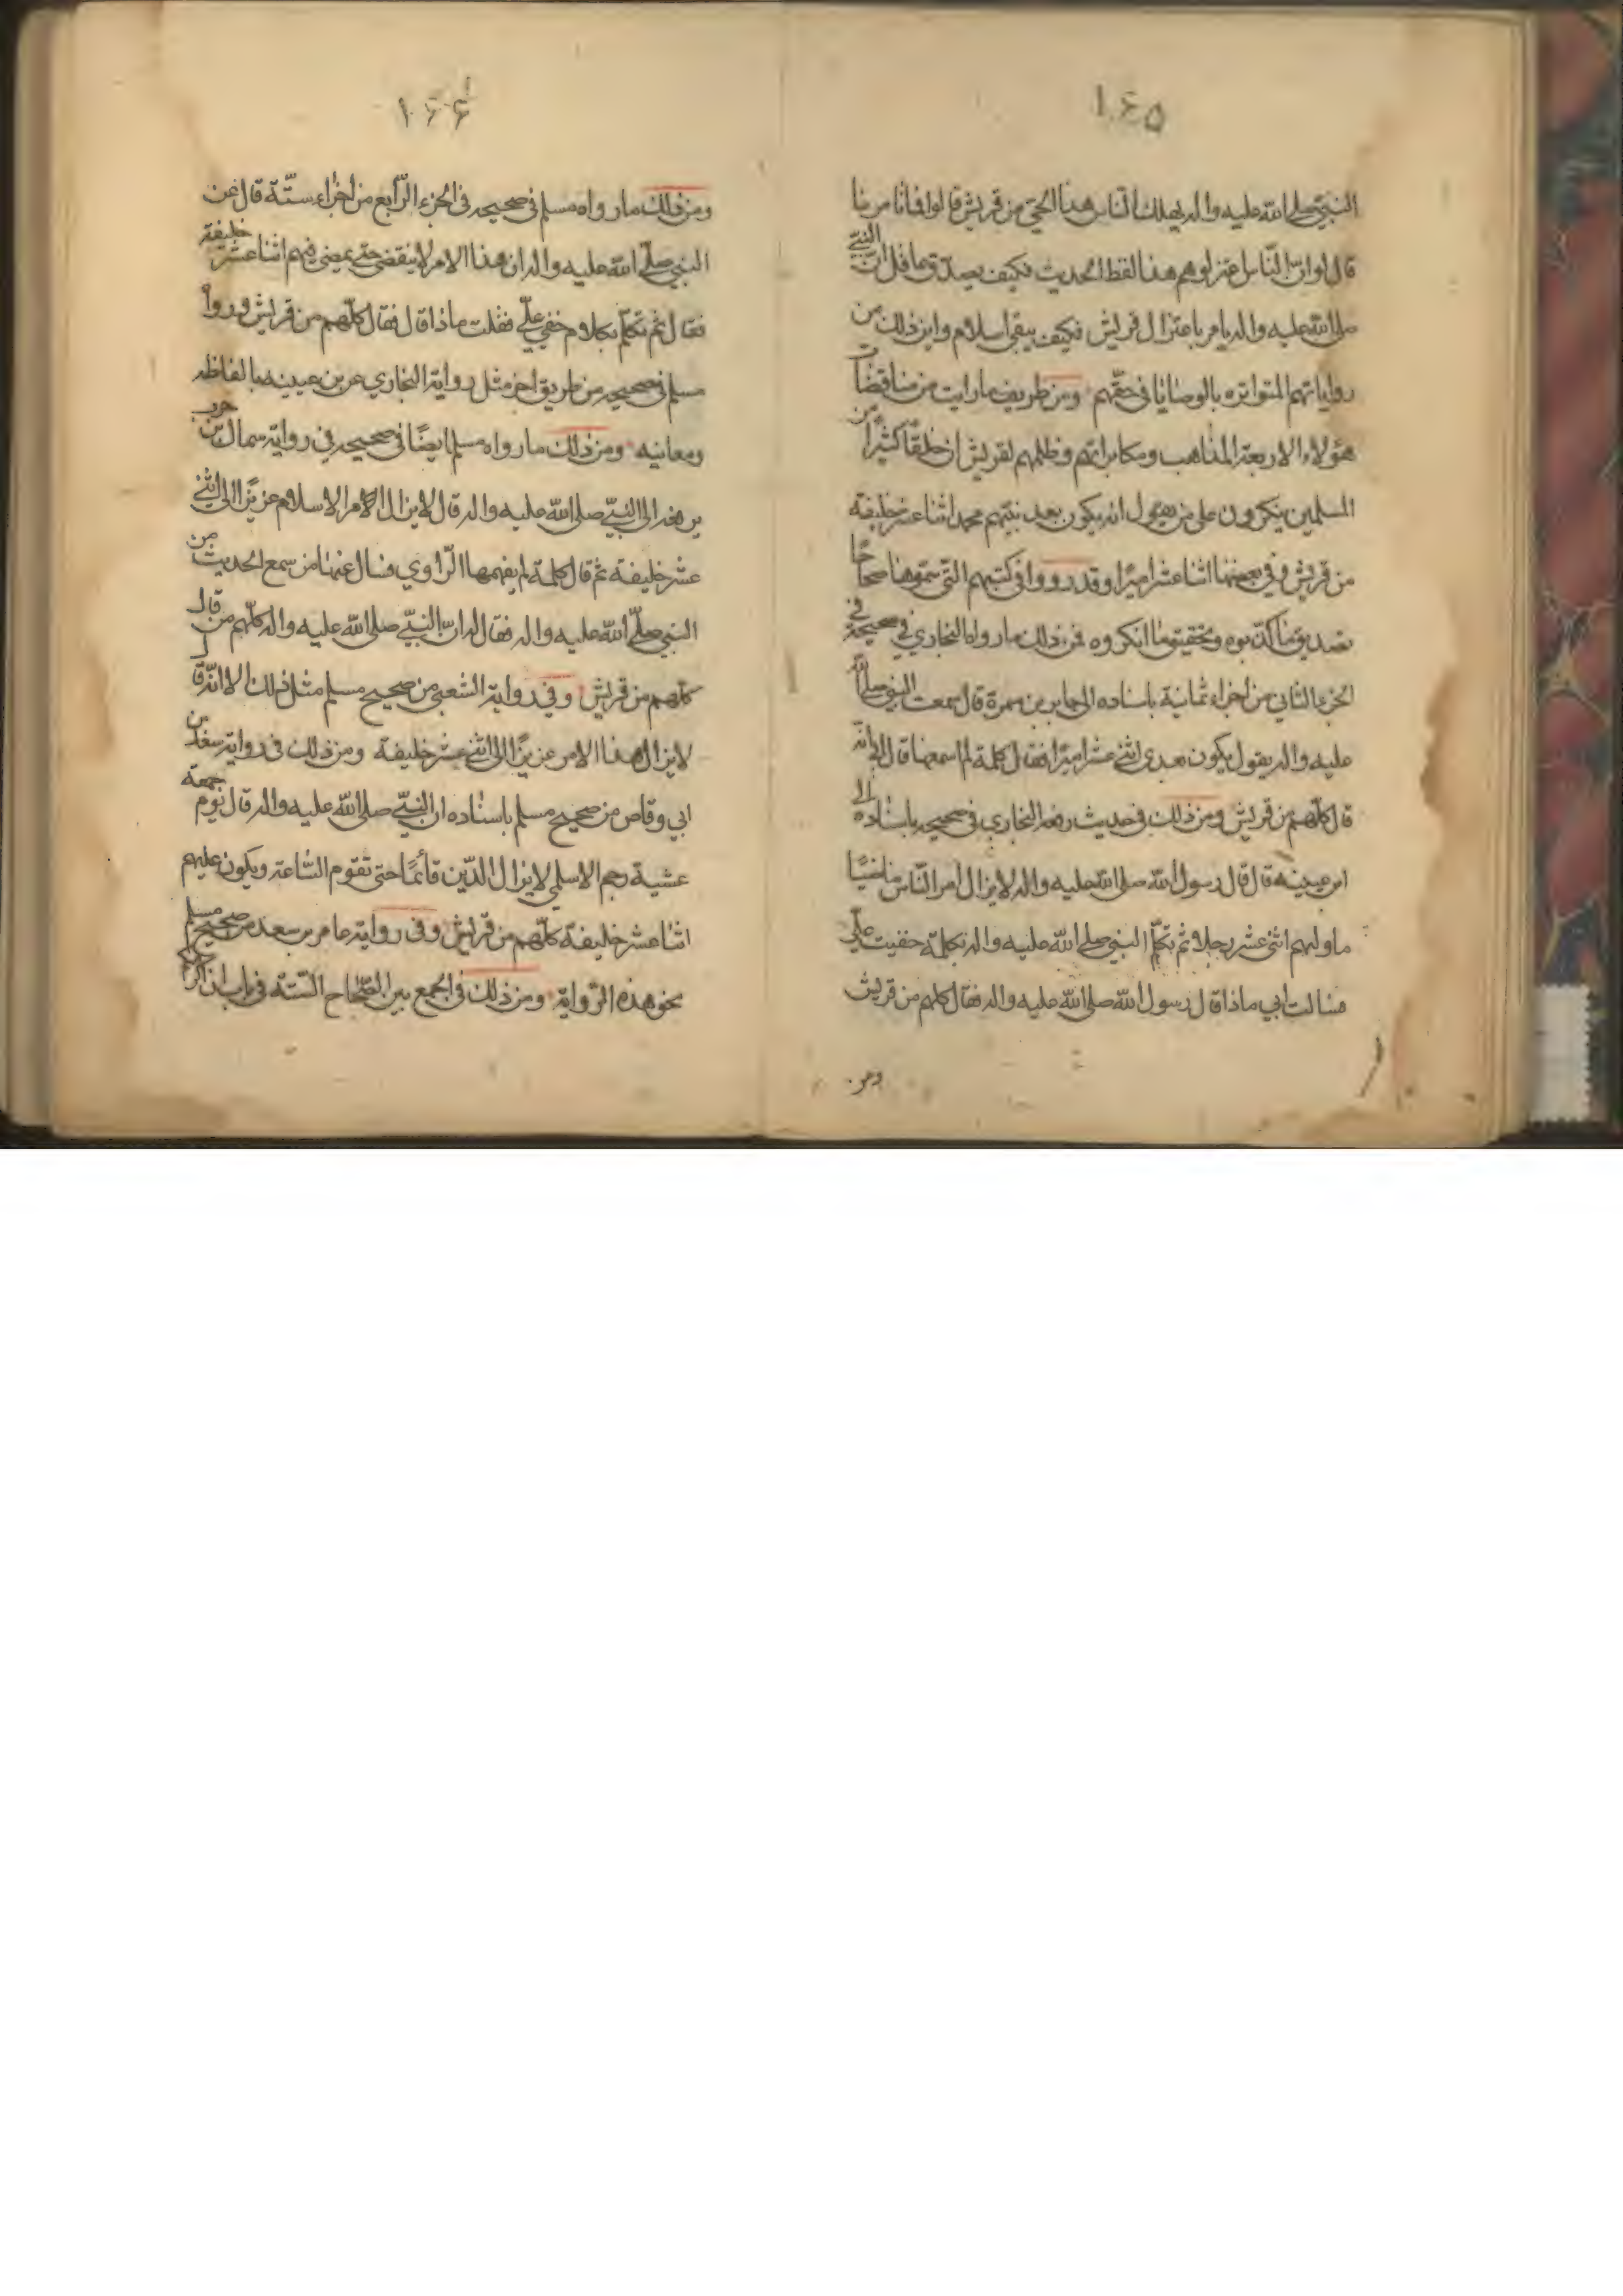 ١٤٥
النبي صلى الله عليه واله يهلك الناس هذا الحي من قريش قالوا فما تامرنا
قال لو ان الناس اعتزلوهم هذا لفظ الحديث فكيف يصدق عاقل ان النبي
صلى الله عليه واله يامر باعتزال قريش فكيف يبقى اسلام واين ذلك من
رواياتهم المتواتره بالوصايا في حقهم ومن طريف ما رايت من مناقضات
هؤلاء الاربعة المذاهب ومكابراتهم وظلمهم لقريش ان خلقا كثيرا من
المسلمين ينكرون على من يقول انه يكون بعد نبيهم محمد اثنا عشر خليفة
من قريش وفي بعضها اثنا عشر اميرا وقد رووا في كتبهم التي سموها صحاحا
تصديق ما كذبوه وتحقيق ما انكروه فمن ذلك ما رواه البخاري في صحيحه في
الجزء الثاني من اجزاء ثمانية باسناده الى جابر بن سمرة قال سمعت النبي صلى الله
عليه واله يقول يكون بعدي اثني عشر اميرا فقال كلمة لم اسمعها قال ابي انه
قال كلهم من قريش ومن ذلك في حديث رفعه البخاري في صحيحه باسناده الى
ابن عيينه قال قال رسول الله صلى الله عليه واله لا يزال امر الناس ماضيا
ما وليهم اثنى عشر رجلا ثم تكلم النبي صلى الله عليه واله بكلمة خفيت علي
فسالت ابي ماذا قال رسول الله صلى الله عليه واله فقال كلهم من قريش
ومن
١۴۶
ومن ذلك ما رواه مسلم في صحيحه في الجزء الرابع من اجزاء ستة قال عن
النبي صلى الله عليه واله ان هذا الامر لا ينقضى حتى يمضى فيهم اثنا عشر خليفة
فقال ثم تكلم بكلام خفي علي فقلت ماذا قال فقال كلهم من قريش وروا
مسلم في صحيحه من طريق اخر مثل رواية البخاري عن بن عيينه بالفاظه
ومعانيه ومن ذلك ما رواه مسلم ايضا في صحيحه في رواية سماك بن حرب
يرفعه الى النبي صلى الله عليه واله قال لا يزال الامر الاسلام عزيزا الى اثنى
عشر خليفة ثم قال كلمة لم يفهمها الراوي فسال عنها من سمع الحديث من
النبي صلى الله عليه واله فقال له ان النبي صلى الله عليه واله قال
كلهم من قريش وفي رواية الشعبي من صحيح مسلم مثل ذلك الا انه قال
لا يزال هذا الامر عزيزا الى اثنى عشر خليفة ومن ذلك في رواية سعد بن
ابي وقاص من صحيح مسلم باسناده ان النبي صلى الله عليه واله قال يوم جمعة
عشية رجم الاسلمي لا يزال الدين قائما حتى تقوم الساعة ويكون عليهم
اثنا عشر خليفة كلهم من قريش وفى رواية عامر بن سعد من صحيح مسلم
نحو هذه الرواية ومن ذلك في الجمع بين الصحاح الستة في باب ان